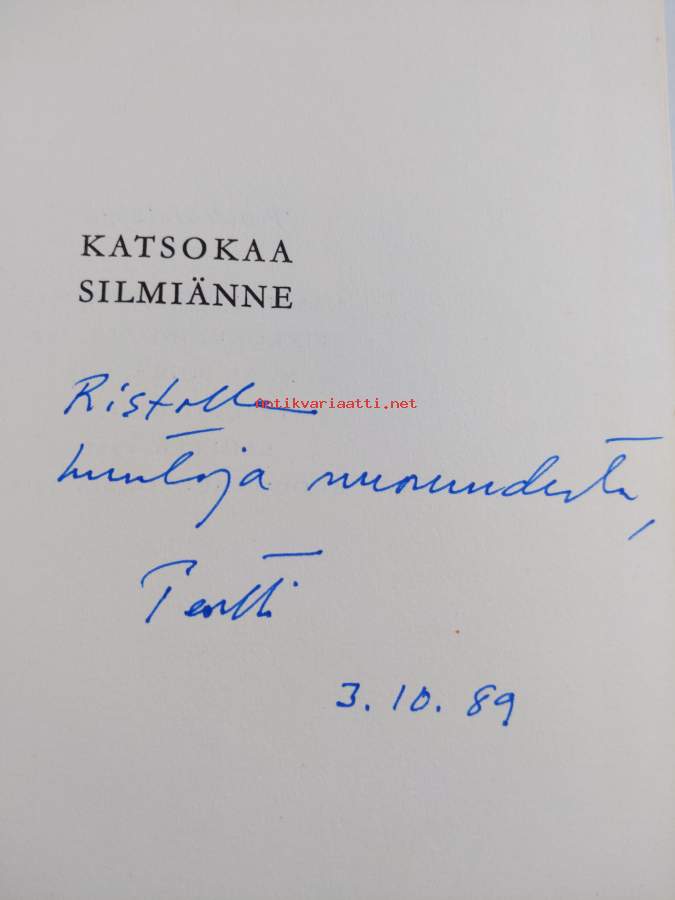 KATSOKAA
SILMIÄNNE
Ristolle
Antikvariaatti.net
nuoruudesta,
Pentti
3.10.89